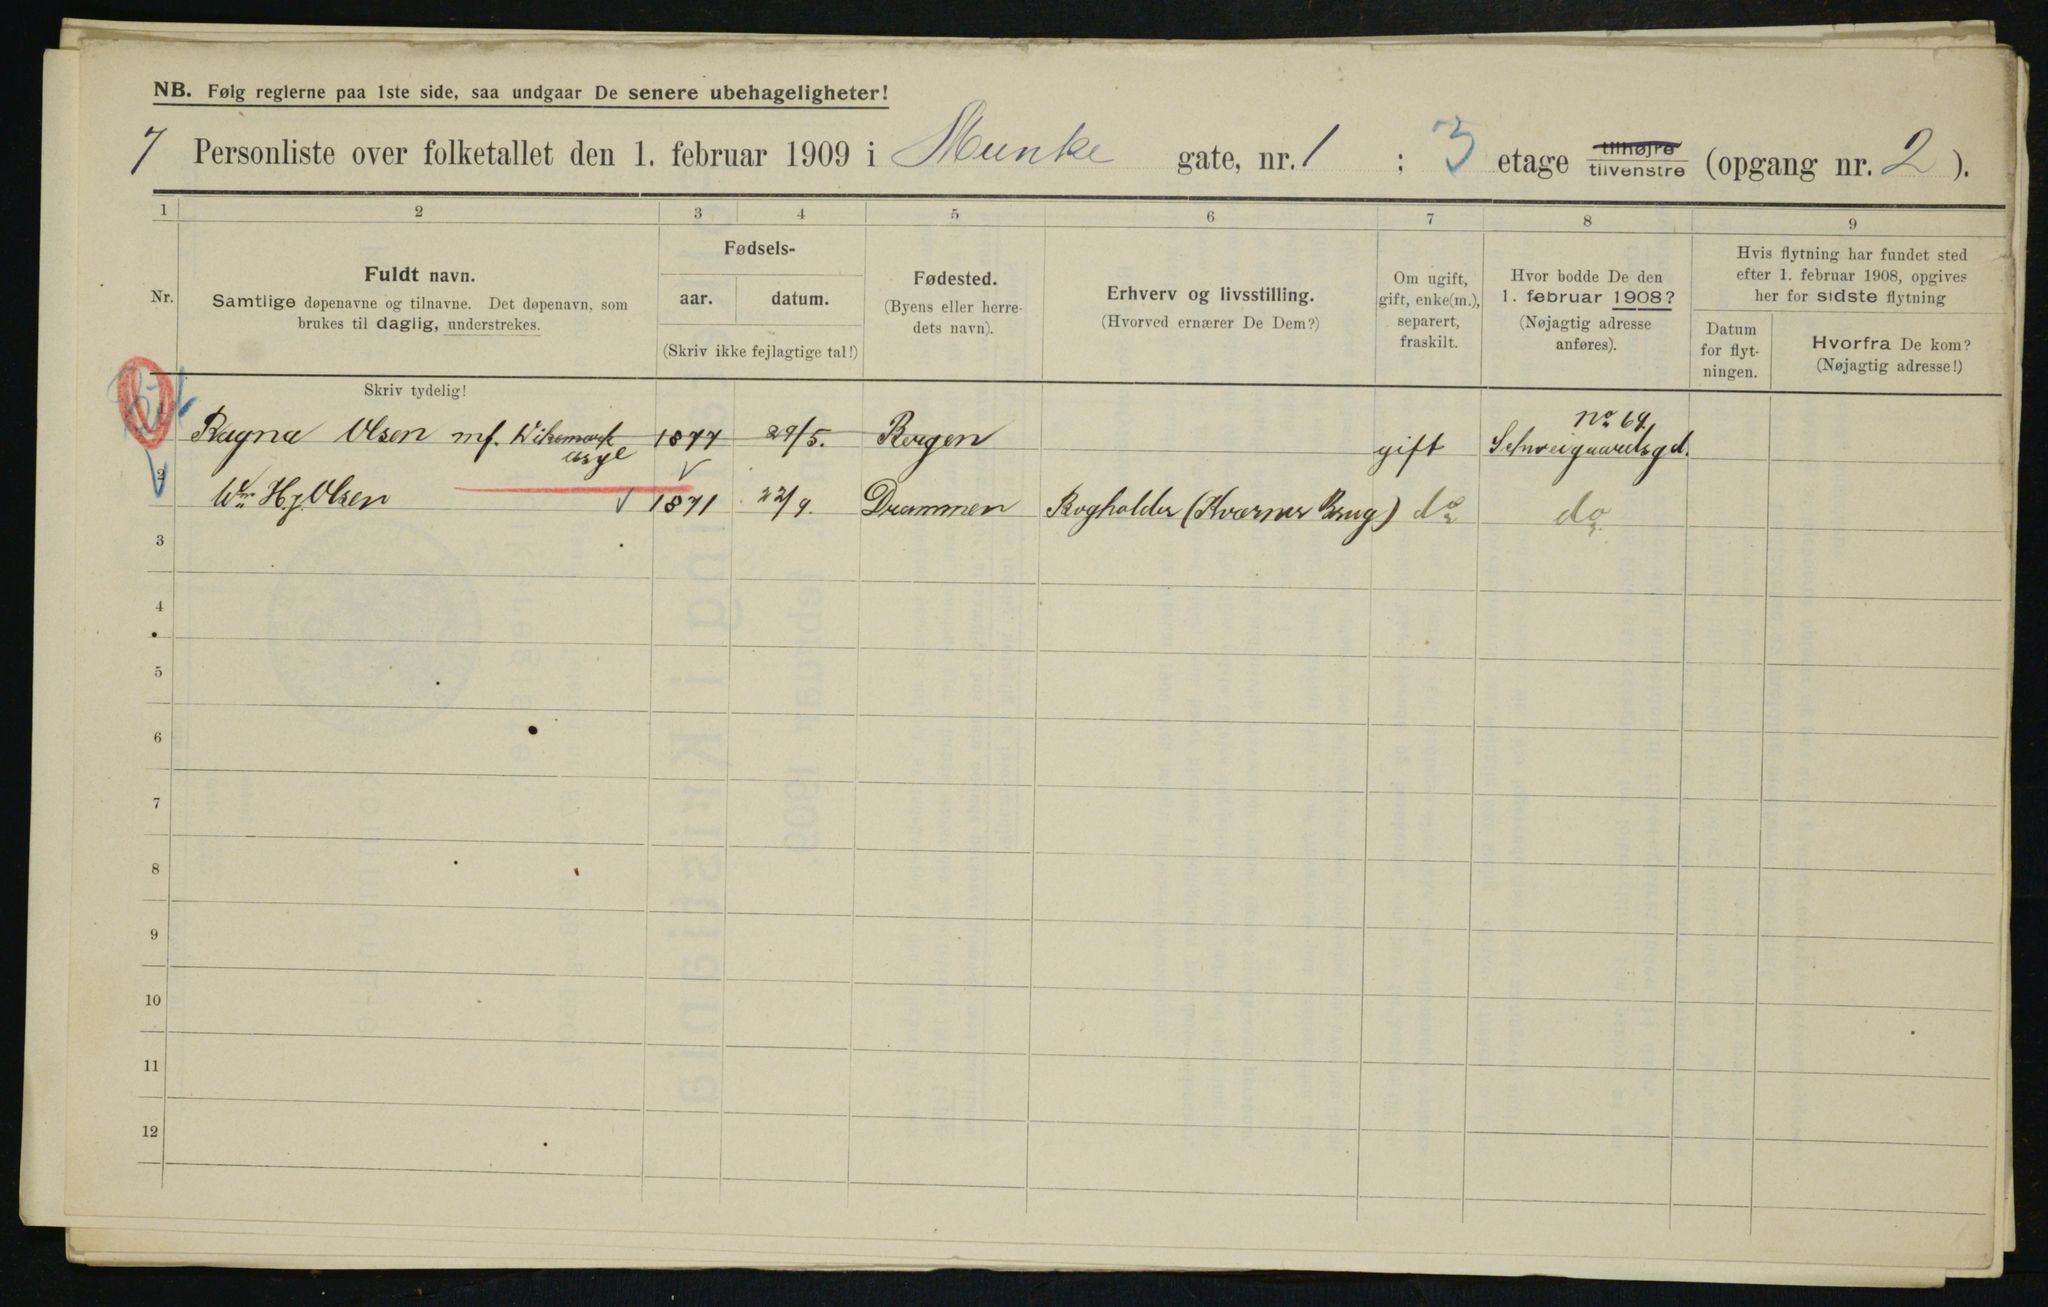 NB. Følg reglerne paa 1ste side, saa undgaar De senere ubehageligheter!
7 Personliste over folketallet den 1. februar 1909 i Munke gate, nr. 1 ; 3 etage tilhøjre tilvenstre (opgang nr. 2 ).
1 2 3 4 5 6 7 8 9
Nr.
Fuldt navn.
Samtlige døpenavne og tilnavne. Det døpenavn, som
brukes til daglig, understrekes.
Fødsels-
aar. datum.
(Skriv ikke fejlagtige tal!)
Fødested.
(Byens eller herre-
dets navn).
Erhverv og livsstilling.
(Hvorved ernærer De Dem?)
Om ugift,
gift, enke(m.),
separert,
fraskilt.
Hvor bodde De den
1. februar 1908?
(Nøjagtig adresse
anføres).
Hvis flytning har fundet sted
efter 1. februar 1908, opgives
her for sidste flytning
Datum
for flyt-
ningen.
Hvorfra De kom?
(Nøjagtig adresse!)
Skriv tydelig!
No 64
Ragna Olsen mf. Wikemark 1877 29/5. Bergen gift Schweigaardsgd.
asyl
2 Wm H.J. Olsen 1871 22/9. Drammen Bogholder (Kværner Brug) do do
3
4
5
6
7
8
9
10
11
12